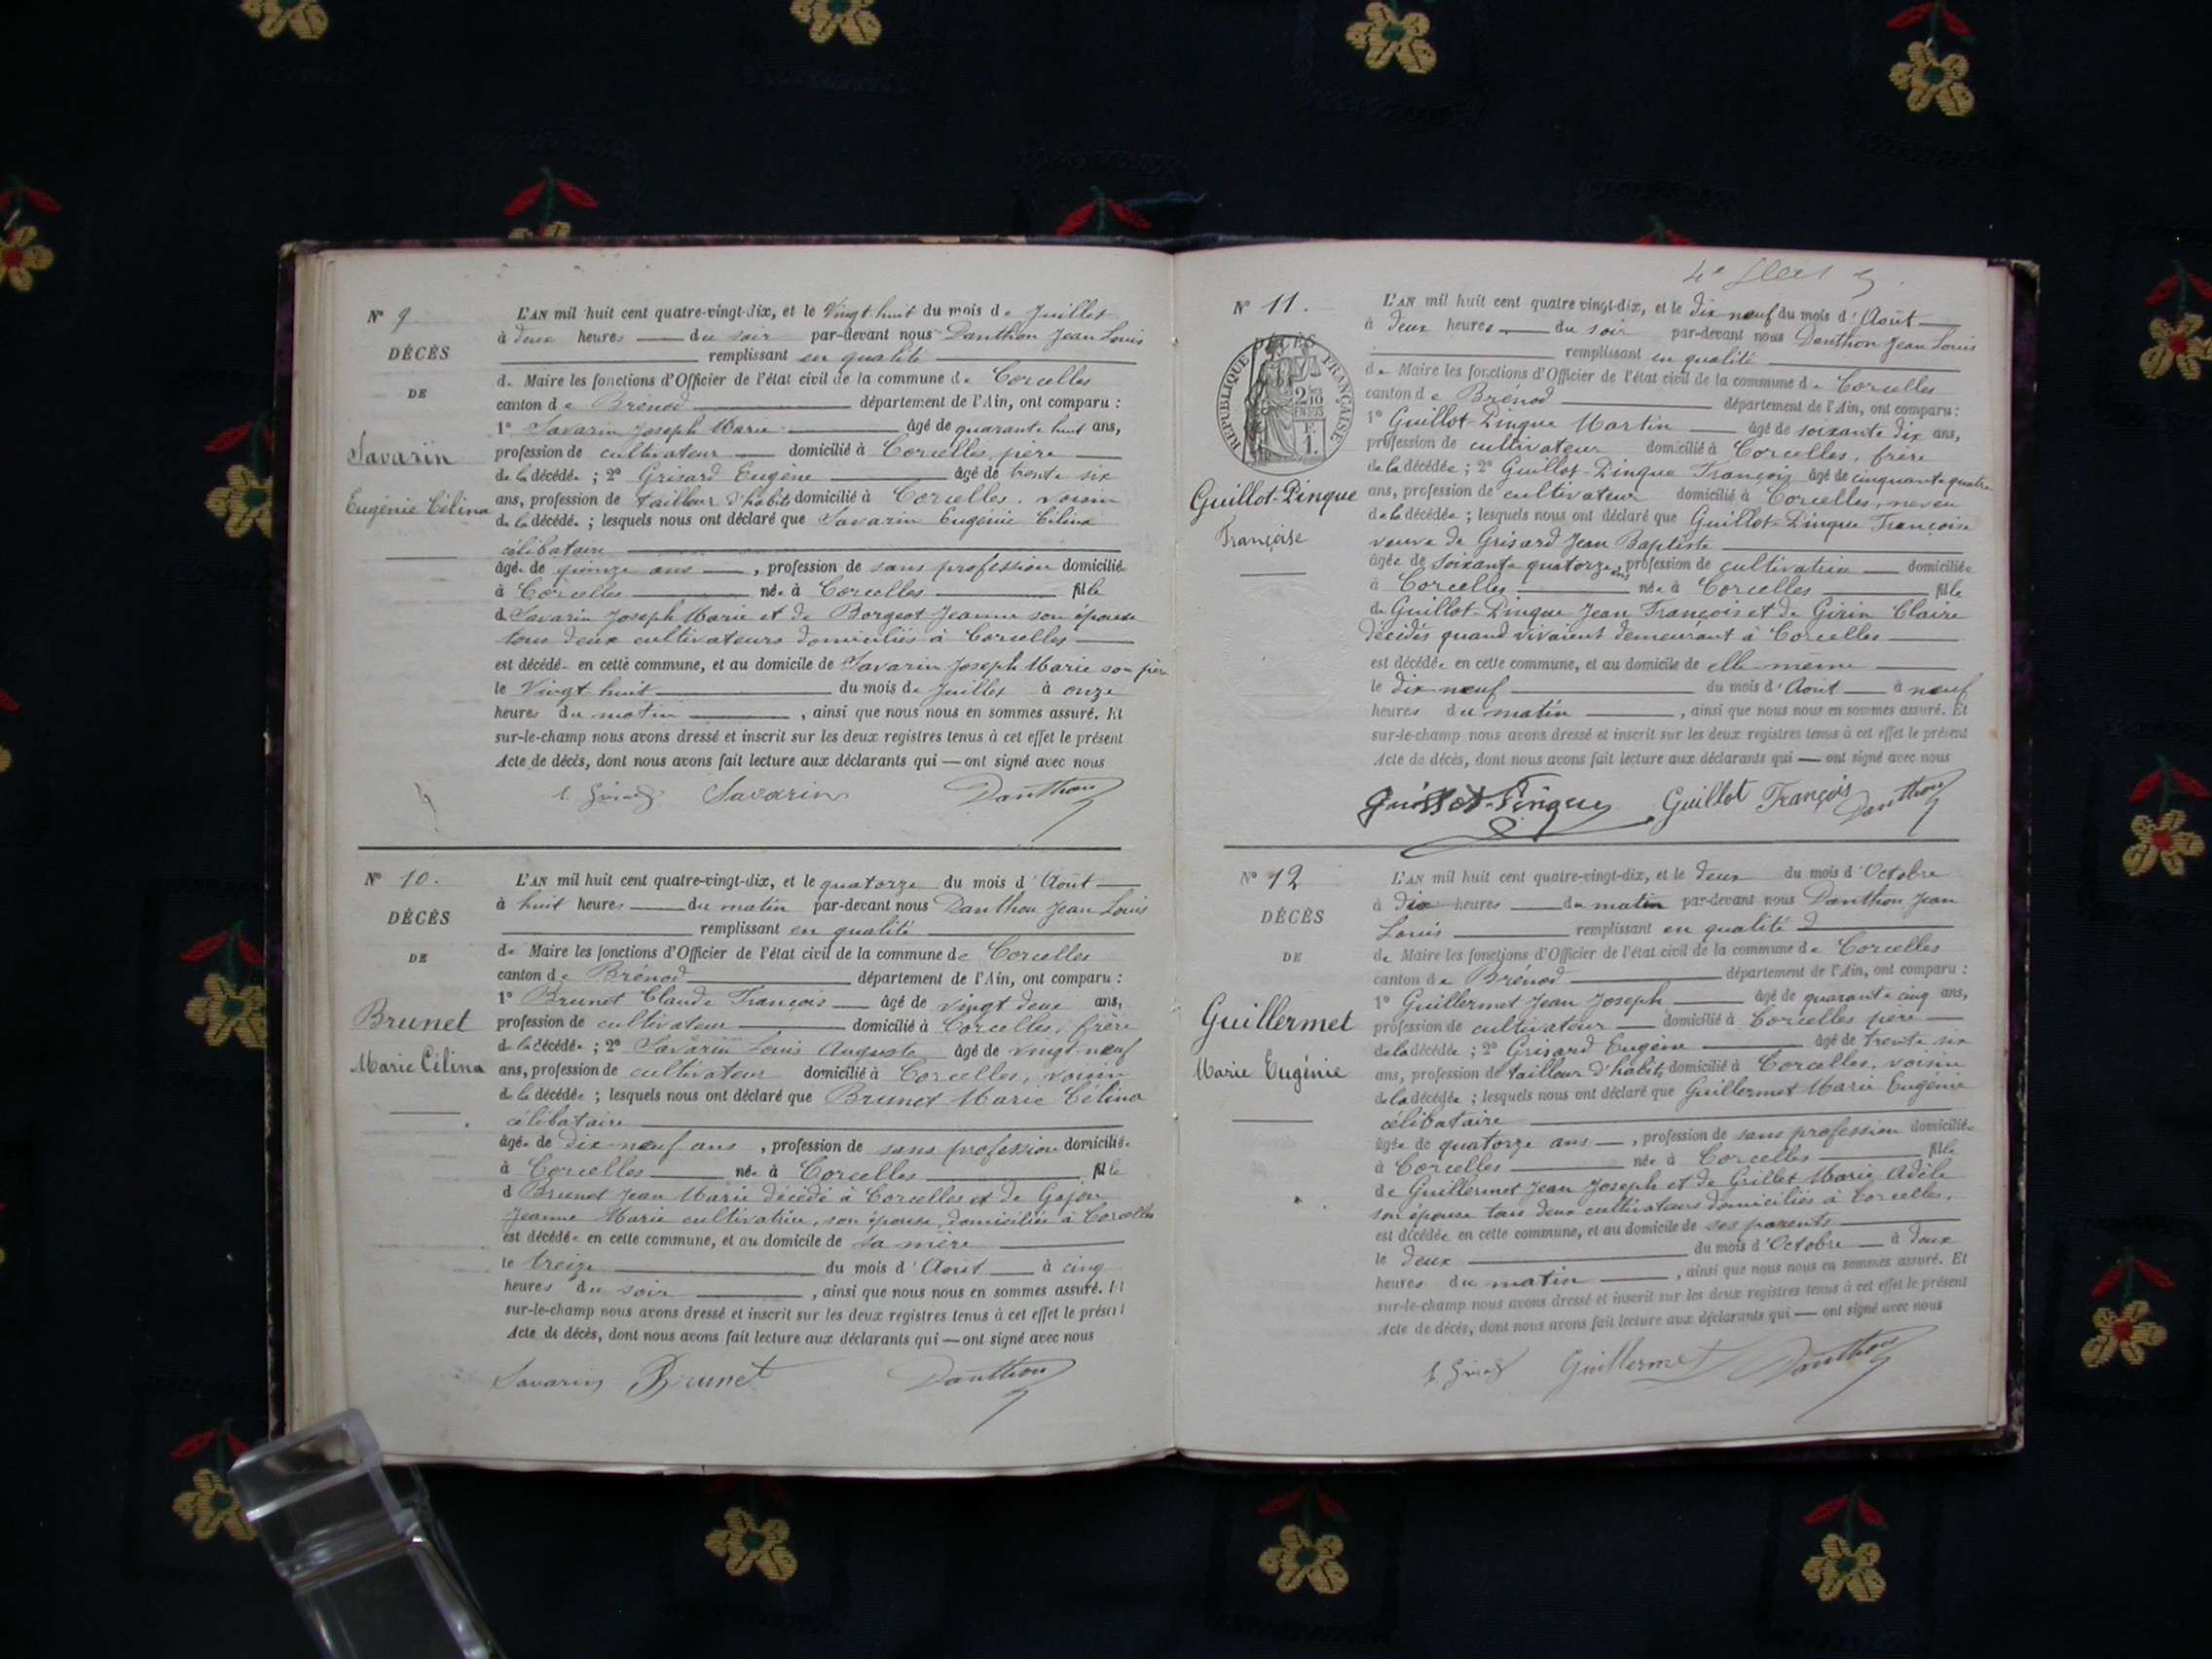 N° 9
DÉCÈS
DE
Savarin
Eugénie Célina
L'AN mil huit cent quatre-vingt-dix, et le Vingt huit du mois de Juillet
à deux heures du soir par-devant nous Danthon Jean Louis
remplissant en qualité
de Maire les fonctions d'Officier de l'état civil de la commune de Corcelles
canton de Brénod département de l'Ain, ont comparu :
1° Savarin Joseph Marie âgé de quarante huit ans,
profession de cultivateur domicilié à Corcelles, père
de la décédée ; 2° Grisard Eugène âgé de trente six
ans, profession de tailleur d'habits domicilié à Corcelles, voisin
de la décédée ; lesquels nous ont déclaré que Savarin Eugénie Célina
célibataire
âgée de quinze ans, profession de sans profession domiciliée
à Corcelles née à Corcelles fille
de Savarin Joseph Marie et de Borgeot Jeanne son épouse
tous deux cultivateurs domiciliés à Corcelles
est décédée en cette commune, et au domicile de Savarin Joseph Marie son père
le Vingt huit du mois de Juillet à onze
heures du matin, ainsi que nous nous en sommes assuré. Et
sur-le-champ nous avons dressé et inscrit sur les deux registres tenus à cet effet le présent
Acte de décès, dont nous avons fait lecture aux déclarants qui — ont signé avec nous
Savarin Danthon
N° 10.
DÉCÈS
DE
Brunet
Marie Célina
L'AN mil huit cent quatre-vingt-dix, et le quatorze du mois d'Août
à huit heures du matin par-devant nous Danthon Jean Louis
remplissant en qualité
de Maire les fonctions d'Officier de l'état civil de la commune de Corcelles
canton de Brénod département de l'Ain, ont comparu :
1° Brunet Claude François âgé de vingt deux ans,
profession de cultivateur domicilié à Corcelles, frère
de la décédée ; 2° Savarin Louis Auguste âgé de vingt-neuf
ans, profession de cultivateur domicilié à Corcelles, voisin
de la décédée ; lesquels nous ont déclaré que Brunet Marie Célina
célibataire
âgée de dix-neuf ans, profession de sans profession domiciliée
à Corcelles née à Corcelles fille
d Brunet Jean Marie décédé à Corcelles et de Gojon
Jeanne Marie cultivatrice, son épouse, domiciliée à Corcelles
est décédée en cette commune, et au domicile de sa mère
le treize du mois d'Août à cinq
heures du soir, ainsi que nous nous en sommes assuré. Et
sur-le-champ nous avons dressé et inscrit sur les deux registres tenus à cet effet le présent
Acte de décès, dont nous avons fait lecture aux déclarants qui — ont signé avec nous
Savarin Brunet Danthon
N° 11.
DÉCÈS
RÉPUBLIQUE FRANÇAISE
2/10 EN SUS
F. 1.
Guillot-Pinque
Françoise
L'AN mil huit cent quatre vingt-dix, et le dix neuf du mois d'Août
à deux heures du soir par-devant nous Danthon Jean Louis
remplissant en qualité
de Maire les fonctions d'Officier de l'état civil de la commune de Corcelles
canton de Brénod département de l'Ain, ont comparu :
1° Guillot-Pinque Martin âgé de soixante dix ans,
profession de cultivateur domicilié à Corcelles, frère
de la décédée ; 2° Guillot-Pinque François âgé de cinquante quatre
ans, profession de cultivateur domicilié à Corcelles, neveu
de la décédée ; lesquels nous ont déclaré que Guillot-Pinque Françoise
veuve de Grisard Jean Baptiste
âgée de soixante quatorze ans, profession de cultivatrice domiciliée
à Corcelles née à Corcelles fille
de Guillot-Pinque Jean François et de Girin Claire
décédés quand vivaient demeurant à Corcelles
est décédée en cette commune, et au domicile de elle même
le dix neuf du mois d'Août à neuf
heures du matin, ainsi que nous nous en sommes assuré. Et
sur-le-champ nous avons dressé et inscrit sur les deux registres tenus à cet effet le présent
Acte de décès, dont nous avons fait lecture aux déclarants qui — ont signé avec nous
Guillot-Pinque Guillot François Danthon
N° 12
DÉCÈS
DE
Guillermet
Marie Eugénie
L'AN mil huit cent quatre-vingt-dix, et le deux du mois d'Octobre
à dix heures du matin par-devant nous Danthon Jean
Louis remplissant en qualité d
de Maire les fonctions d'Officier de l'état civil de la commune de Corcelles
canton de Brénod département de l'Ain, ont comparu :
1° Guillermet Jean Joseph âgé de quarante cinq ans,
profession de cultivateur domicilié à Corcelles père
de la décédée ; 2° Grisard Eugène âgé de trente six
ans, profession de tailleur d'habits domicilié à Corcelles, voisin
de la décédée ; lesquels nous ont déclaré que Guillermet Marie Eugénie
célibataire
âgée de quatorze ans, profession de sans profession domiciliée
à Corcelles née à Corcelles fille
de Guillermet Jean Joseph et de Grillet Marie Adèle
son épouse tous deux cultivateurs domiciliés à Corcelles.
est décédée en cette commune, et au domicile de ses parents
le deux du mois d'Octobre à deux
heures du matin, ainsi que nous nous en sommes assuré. Et
sur-le-champ nous avons dressé et inscrit sur les deux registres tenus à cet effet le présent
Acte de décès, dont nous avons fait lecture aux déclarants qui — ont signé avec nous
Guillermet Danthon